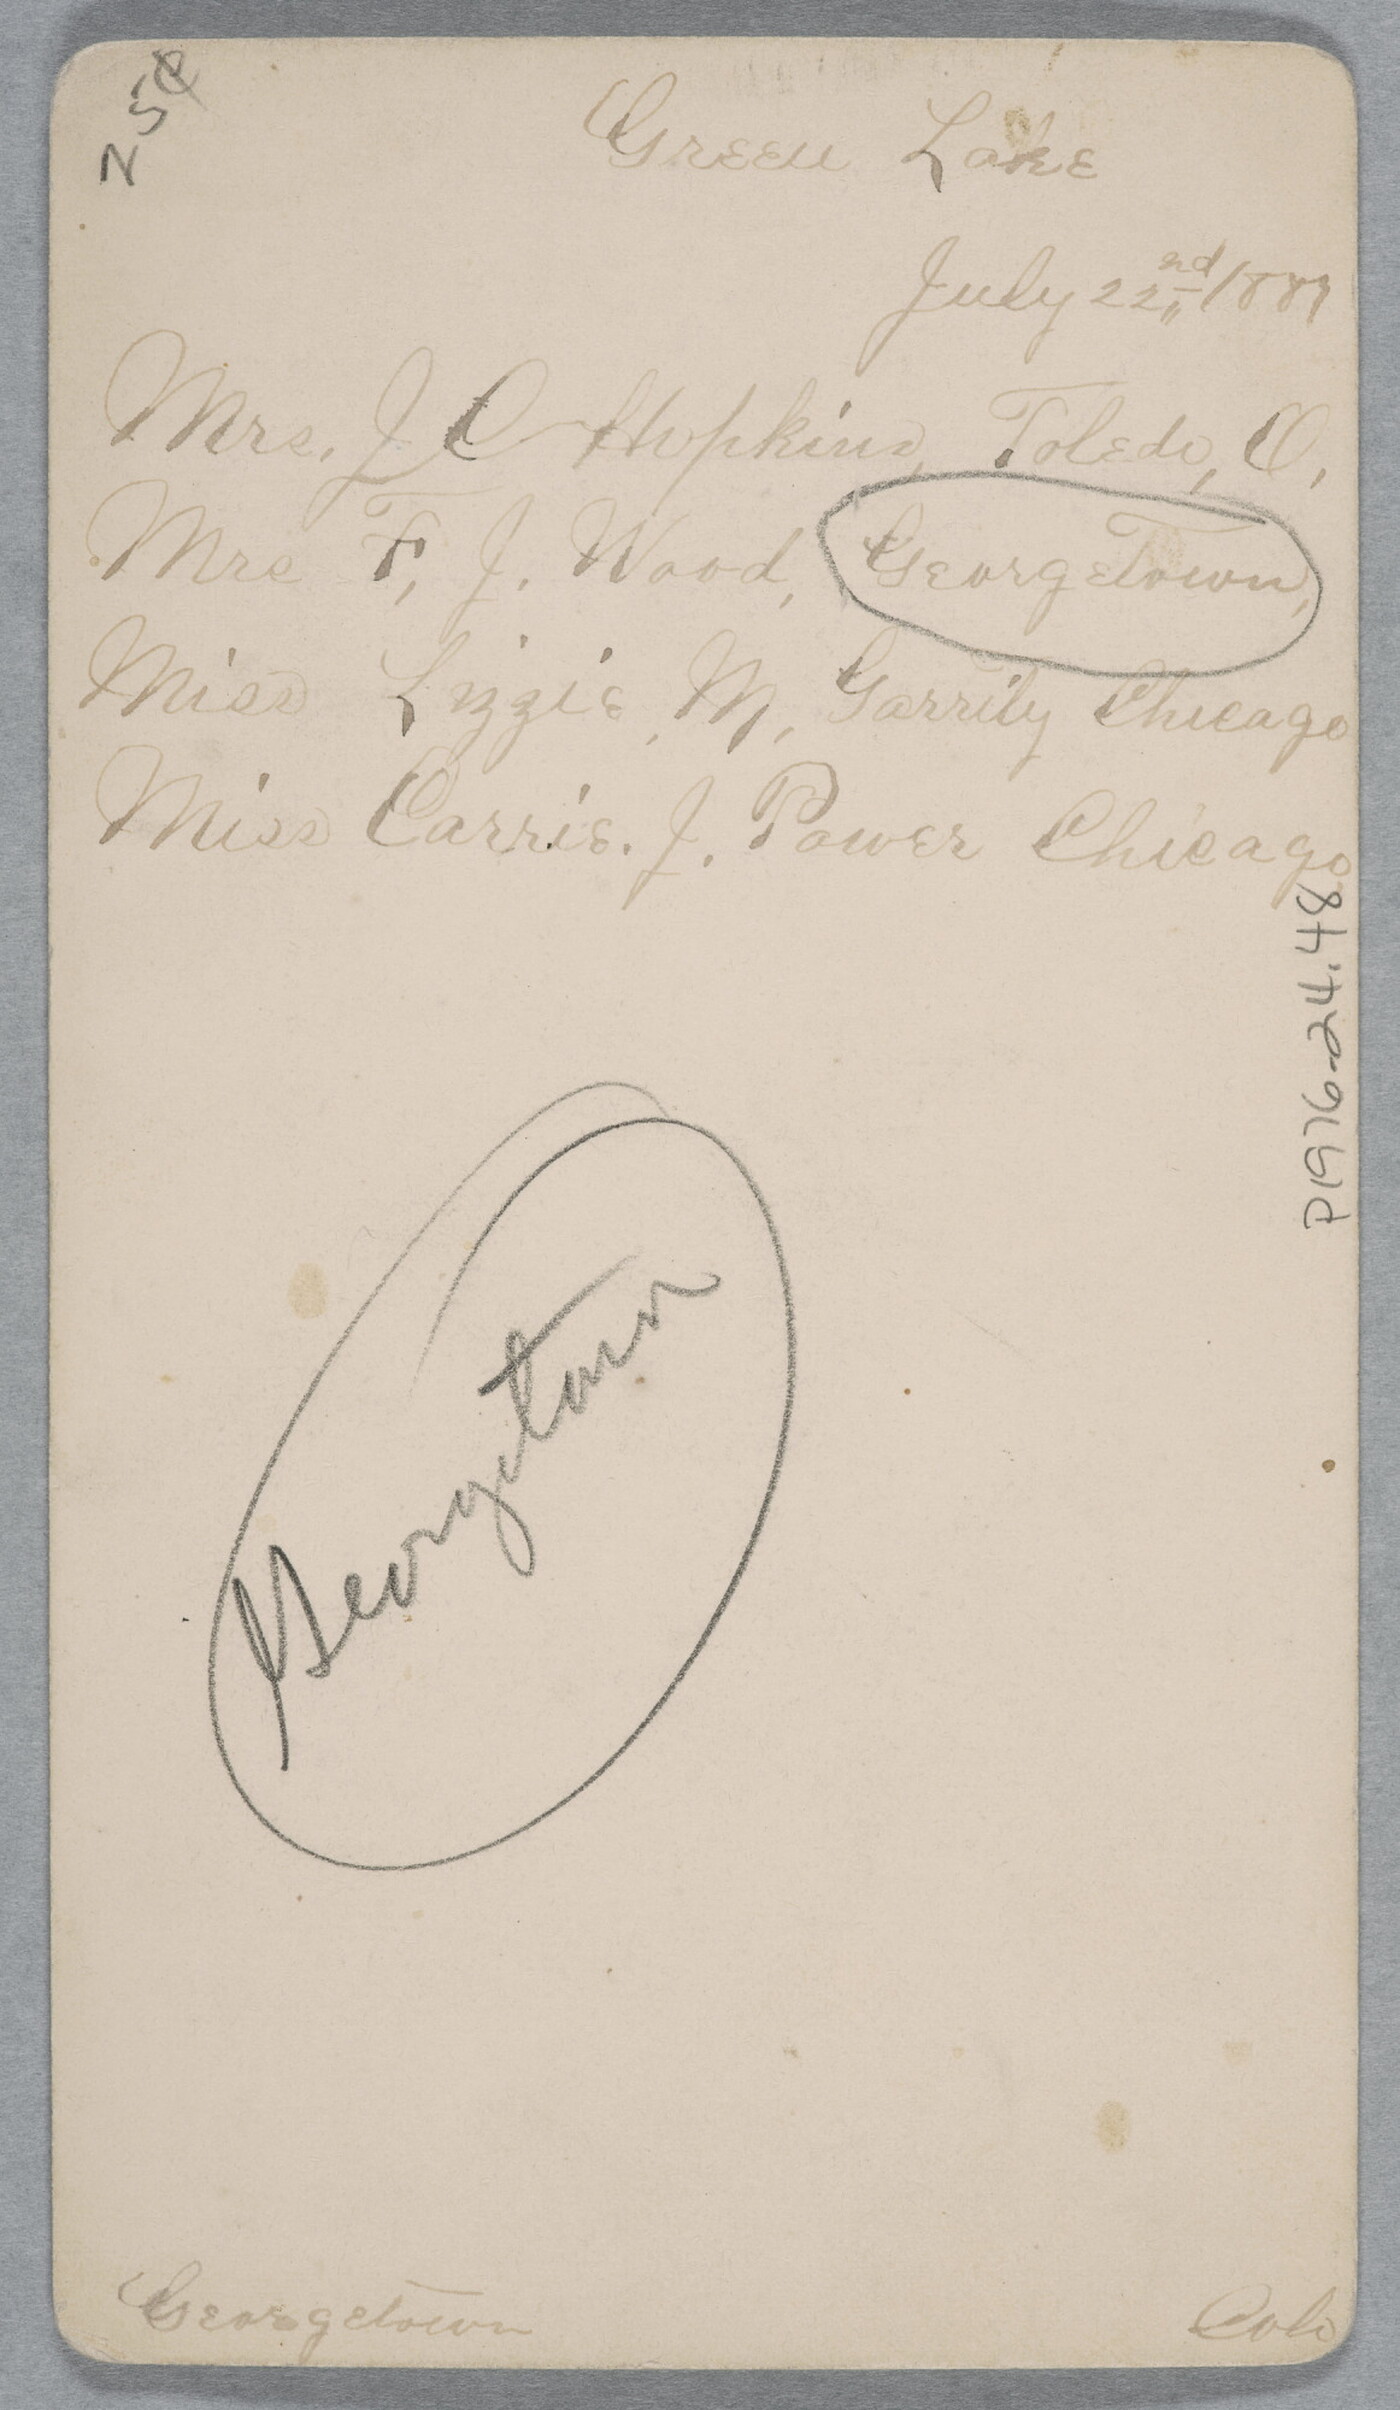 25¢
Green Lake
July 22nd 1887
Mrs. J C Hopkins, Toledo, O,
Mrs F, J. Wood, Georgetown,
Miss Lizzie M, Garrity Chicago
Miss Carrie. J. Power Chicago
P1976-24.478
Georgetown
Georgetown Colo